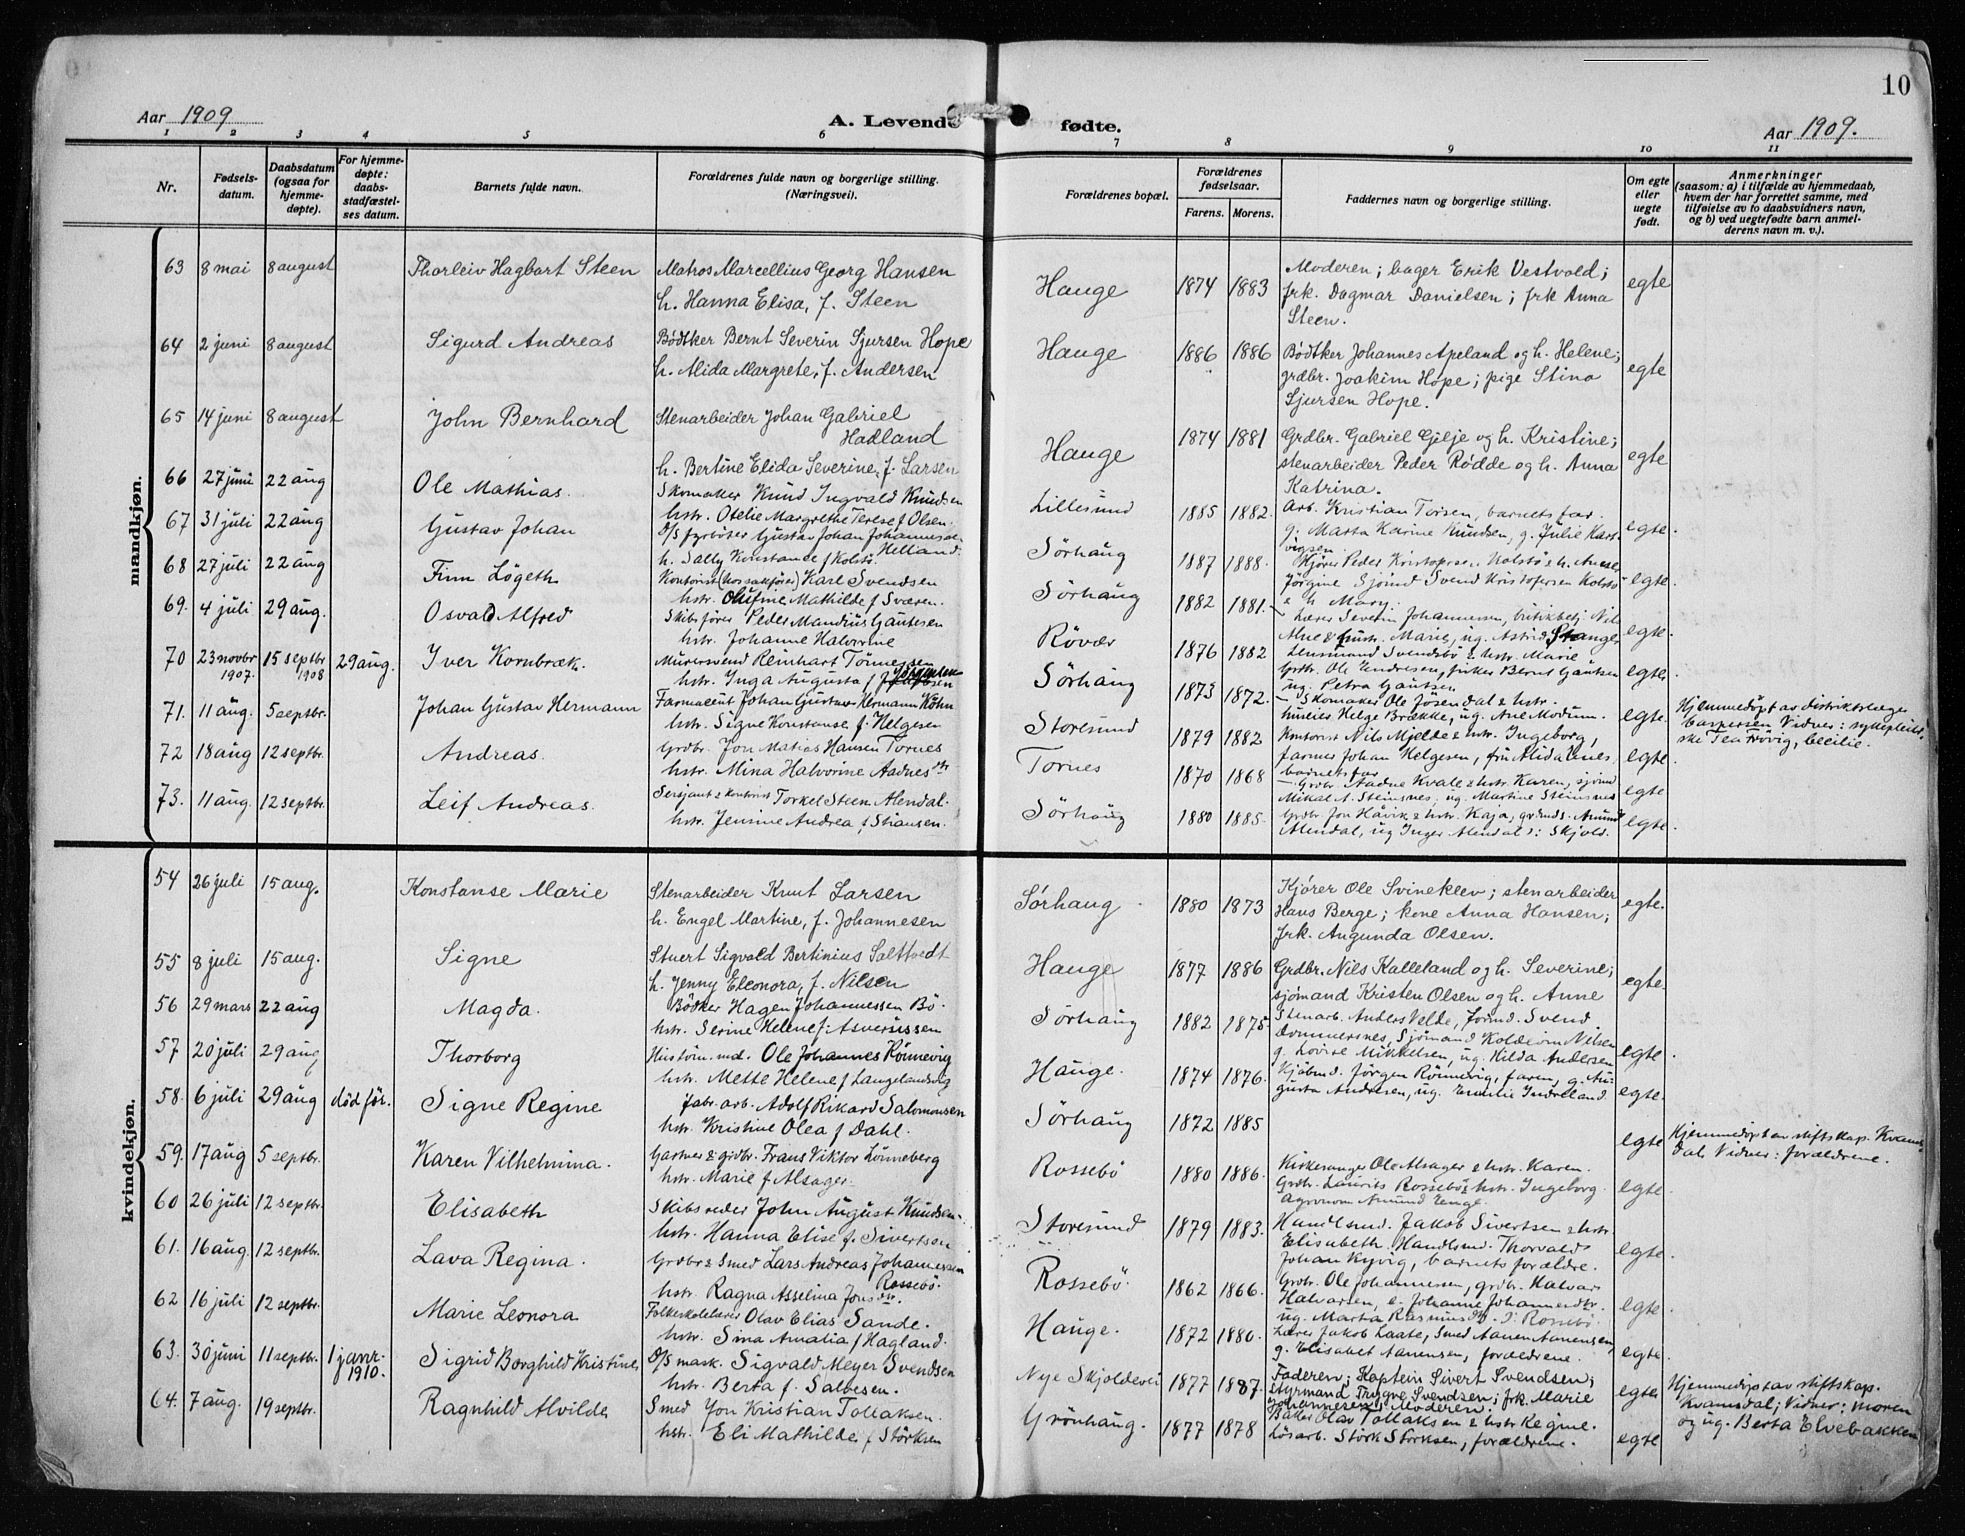 10
Aar 1909
A. Levende fødte.
Aar 1909.
1 2 3 4 5 6 7 8 9 10 11
Nr.
Fødsels-
datum.
Daabsdatum
(ogsaa for
hjemme-
døpte).
For hjemme-
døpte:
daabs-
stadfæstel-
ses datum.
Barnets fulde navn.
Forældrenes fulde navn og borgerlige stilling.
(Næringsvei).
Forældrenes bopæl.
Forældrenes
fødselsaar.
Farens. Morens.
Faddernes navn og borgerlige stilling.
Om egte
eller
uegte
født.
Anmerkninger
(saasom: a) i tilfælde av hjemmedaab,
hvem der har forrettet samme, med
tilføielse av to daabsvidners navn,
og b) ved uegtefødte barn anmel-
derens navn m. v.).
mandkjøn.
63 8 mai 8 august Thorleiv Hagbart Steen
Matros Marcellius Georg Hansen
h. Hanna Elisa, f. Steen
Hauge 1874 1883
Moderen; bager Erik Vestvold;
frk. Dagmar Danielsen; frk Anna
Steen.
egte
64 2 juni 8 august Sigurd Andreas
Bødtker Bernt Severin Sjursen Hope
h. Alida Margrete, f. Andersen
Hauge 1886 1886
Bødtker Johannes Apeland og h. Helene;
grdbr. Joakim Hope; pige Stina
Sjursen Hope.
egte
65 14 juni 8 august John Bernhard
Stenarbeider Johan Gabriel
Hadland
h. Bertine Elida Severine, f. Larsen
Hauge 1874 1881
Grdbr. Gabriel Gilje og h. Kristine;
stenarbeider Peder Rødde og h. Anna
Katrina.
egte
66 27 juni 22 aug Ole Mathias.
Skomaker Knud Ingvald Knudsen
hstr. Otelie Margrethe Terese f Olsen.
Lillesund 1885 1882.
Arb. Kristian Torsen, barnets far.
g. Marta Karine Knudsen, g. Julie Kast-
vigsen.
egte.
67 31 juli 22 aug Gustav Johan
O/S fyrbøter Gustav Johan Johannesen
Helland.
h. Sally Konstance f Kolstø.
Sørhaug 1887 1888.
Kjører Peder Kristofersen Kolstø & h. Anne
Jørgine Sjømd Svend Kristofersen Kolstø
& h Mary.
egte.
68 27 juli 22 aug Finn Løgeth
Kontorist (kassakfører) Karl Svendsen
hstr. Olufine Mathilde f Sværen.
Sørhaug 1882 1881.
Lærer Severin Johannesen, butikbetj Nil
Alne & hustr. Marie, ug. Astrid Stange
Lensmand Svendsbø & hstr. Marie
egte.
69. 4 juli 29 aug. Osvald Alfred
Skibsfører Peder Mandrus Gautesen
hstr. Johanne Halvorine
Røvær 1876 1882
Grdbr. Ole Endresen, fisker Bernt Gautsen
ug. Petra Gautsen
egte.
70 23 novbr 1907. 15 septbr 1908 29 aug. Iver Kornbræk.
Murersvend Reinhart Tønnessen
hstr. Inga Augusta f
Sørhaug 1873 1872.
Skomaker Ole Josendal & hstr.
huseier Helge Brække, ug. Ane Modum.
egte.
71. 11 aug. 5 septbr. Johan Gustav Hermann
Farmaceut Johan Gustav Hermann Köhn
hstr. Signe Konstanse f Helgesen
Storesund 1879 1882
Kontorist Nils Mjelde & hstr. Ingeborg,
farmer Johan Helgesen, fru Alida Enes,
barnets far
egte.
Hjemmedøpt av distriktslæge
Caspersen Vidner: sykepleier-
ske Tea Frøvig, Cecilie.
72 18 aug 12 septbr. Andreas.
Grdbr. Jon Matias Hansen Tornes
hstr. Mina Halvorine Aadnesdtr
Tornes 1870 1868
Grdbr. Aadne Kvale & hstr. Karen, sjømd
Mikal A. Steinsnes, ug. Martine Steinsnes
egte.
73. 11 aug. 12 septbr. Leif Andreas.
Sersjant & kontorist Torkel Steen Alendal.
hstr. Jensine Andrea f Stiansen.
Sørhaug 1880 1885.
Grdbr Jon Håvik & hstr. Kaja, grdmds. Amund
Alendal, ug Inger Alendal i: Skjold.
egte.
kvindekjøn.
54 26 juli 15 aug. Konstanse Marie
Stenarbeider Knut Larsen
h. Engel Martine, f. Johannesen
Sørhaug. 1880 1873
Kjører Ole Svineklev; stenarbeider
Hans Berge; kone Anna Hansen;
frk. Augunda Olsen.
egte.
55 8 juli 15 aug. Signe
Stuert Sigvald Bertinius Salttvedt
h. Jenny Eleonora, f. Nilsen
Hauge 1877 1886
Grdbr. Nils Kalleland og h. Severine;
sjømand Kristen Olsen og h. Anne
egte.
56 29 mars 22 aug Magda.
Bødker Hagen Johannessen Bø.
hstr. Serine Helene f: Asversissen
Sørhaug 1882 1875
Stenarb. Anders Velde, formd. Svend
Dommersnes, Sjømand Koldevin Nilsen
g. Lovise Mikkelsen, ug. Hilda Andersen
egte.
57 20 juli 29 aug Thorborg
Hustøm. md. Ole Johannes Rønnevig
hstr. Mette Helene f Langelandsvig
Hauge. 1874 1876.
Kjøbmd. Jørgen Rønnevig, faren, g. Au-
gusta Andresen, ug. Emilie Indreland.
egte.
58. 6 juli 29 aug død før. Signe Regine
fabr. arb. Adolf Rikard Salomonsen
hstr. Kristine Olea f Dahl.
Sørhaug 1872 1885
egte
Hjemmedøpt av stiftskap. Kvams-
dal Vidner: forældrene.
59. 17 aug 5 septbr. Karen Vilhelmina.
Gartner & grdbr. Frans Viktor Lønneberg
hstr. Marie f Alsager.
Rossebø 1880 1886.
Kirkesanger Ole Alsager & hstr. Karen.
Grdbr. Laurits Rossebø & hstr. Ingeborg.
Agronom Amund Enge.
egte.
60 26 juli 12 septbr. Elisabeth
Skibsreder John August Knudsen.
hstr. Hanna Elise f. Sivertsen
Storesund 1879 1883.
Handlsmd. Jakob Sivertsen & hstr.
Elisabeth. Handlsmd. Thorvald
Johan Kyvig, barnets forældre.
egte.
61. 16 aug. 12 septbr. Lava Regina.
Grdbr & Smed Lars Andreas Johannessen
Rossebø.
hstr. Ragna Asselina Jonsdtr.
Rossebø 1862 1866.
Grdbr. Ole Johannesen, grdbr. Halvar
Halvarsen, e. Johanne Johannesdtr.
ug. Marta Rasmusd. i: Rossebø.
egte.
62 16 juli 12 septbr. Marie Leonora
Folkeskolelærer Olav Elias Sande.
hstr. Sina Amalia f Hagland.
Hauge. 1872 1880.
Lærer Jakob Laate, Smed Aanen Aanensen,
g. Elisabet Aanensen, forældrene.
egte.
63. 30 juni 11 septbr. 1 janr. 1910. Sigrid Borghild Kristine
O/S mask. Sigvald Meyer Svendsen
hstr. Berta f. Salvesen.
Nye Skjoldevei 1877 1887.
Faderen; Kaptein Sivert Svendsen;
styrmand Trygve Svendsen; frk. Marie
Johannesen; Moderen.
egte
Hjemmedøpt av stiftskap.
Kvamsdal; Vidner: moren
og ug. Berta Elvebakken
64. 7 aug. 19 septbr. Ragnhild Alvilde
Smed Jon Kristian Tollaksen.
hstr. Eli Mathilde f Størksen
Grönhaug. 1877 1878
Baker Olav Tollaksen & hstr Regine.
Løsarb. Størk Størksen, forældrene.
egte